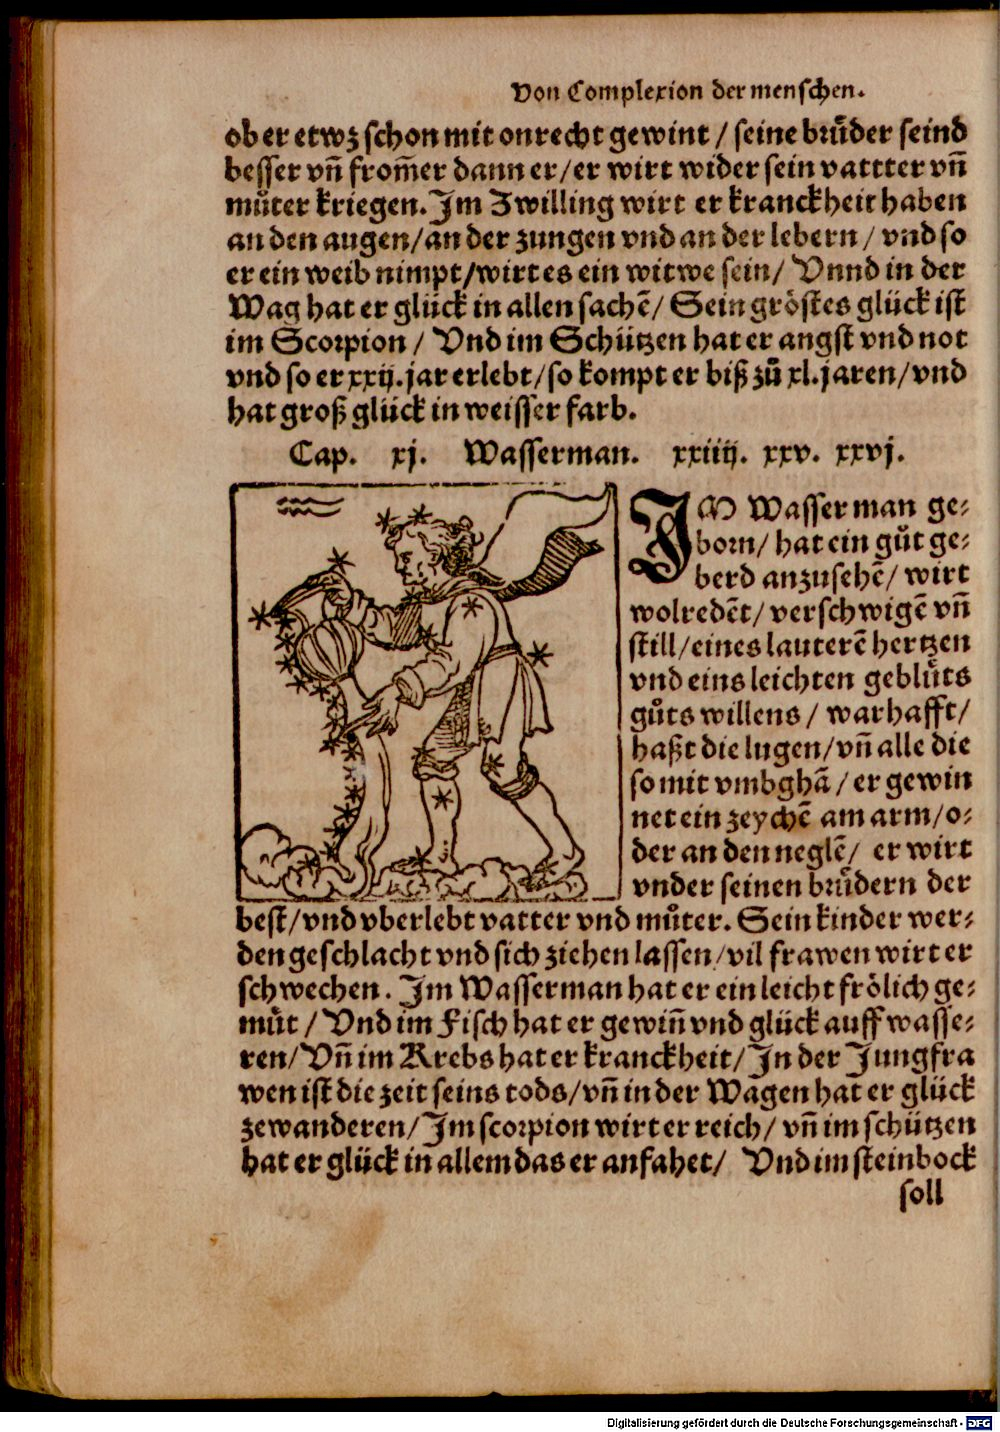 Von Complexion der menschen.
ob er etwz schon mit onrecht gewint / seine brůder seind
besser vn̄ from̄er dann er / er wirt wider sein vattter vn̄
můter kriegen. Im Zwilling wirt er kranckheit haben
an den augen / an der zungen vnd an der lebern / vnd so
er ein weib nimpt / wirt es ein witwe sein / Vnnd in der
Wag hat er glück in allen sachē / Sein gröstes glück ist
im Scorpion / Vnd im Schützen hat er angst vnd not
vnd so er xxij. jar erlebt / so kompt er biß zů xl. jaren / vnd
hat groß glück in weisser farb.
Cap. xj. Wasserman. xxiiij. xxv. xxvj.
IM Wasserman ge⸗
born / hat ein gůt ge⸗
berd anzusehē / wirt
wolredēt / verschwigē vn̄
still / eines lauterē hertzen
vnd eins leichten geblůts
gůts willens / warhafft /
haßt die lugen / vn̄ alle die
so mit vmbghā / er gewin
net ein zeychē am arm / o⸗
der an den neglē / er wirt
vnder seinen brůdern der
best / vnd vberlebt vatter vnd můter. Sein kinder wer⸗
den geschlacht vnd sich ziehen lassen / vil frawen wirt er
schwechen. Im Wasserman hat er ein leicht frölich ge⸗
můt / Vnd im Fisch hat er gewin̄ vnd glück auff wasse⸗
ren / Vn̄ im Krebs hat er kranckheit / In der Jungfra
wen ist die zeit seins tods / vn̄ in der Wagen hat er glück
zewanderen / Im scorpion wirt er reich / vn̄ im schützen
hat er glück in allem das er anfahet / Vnd im steinbock
soll
Digitalisierung gefördert durch die Deutsche Forschungsgemeinschaft - DFG